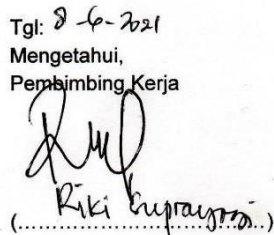 Tgl: 8-6-2021
Mengetahui,
Pembimbing Kerja
Riki Suprayogi
(........................................)